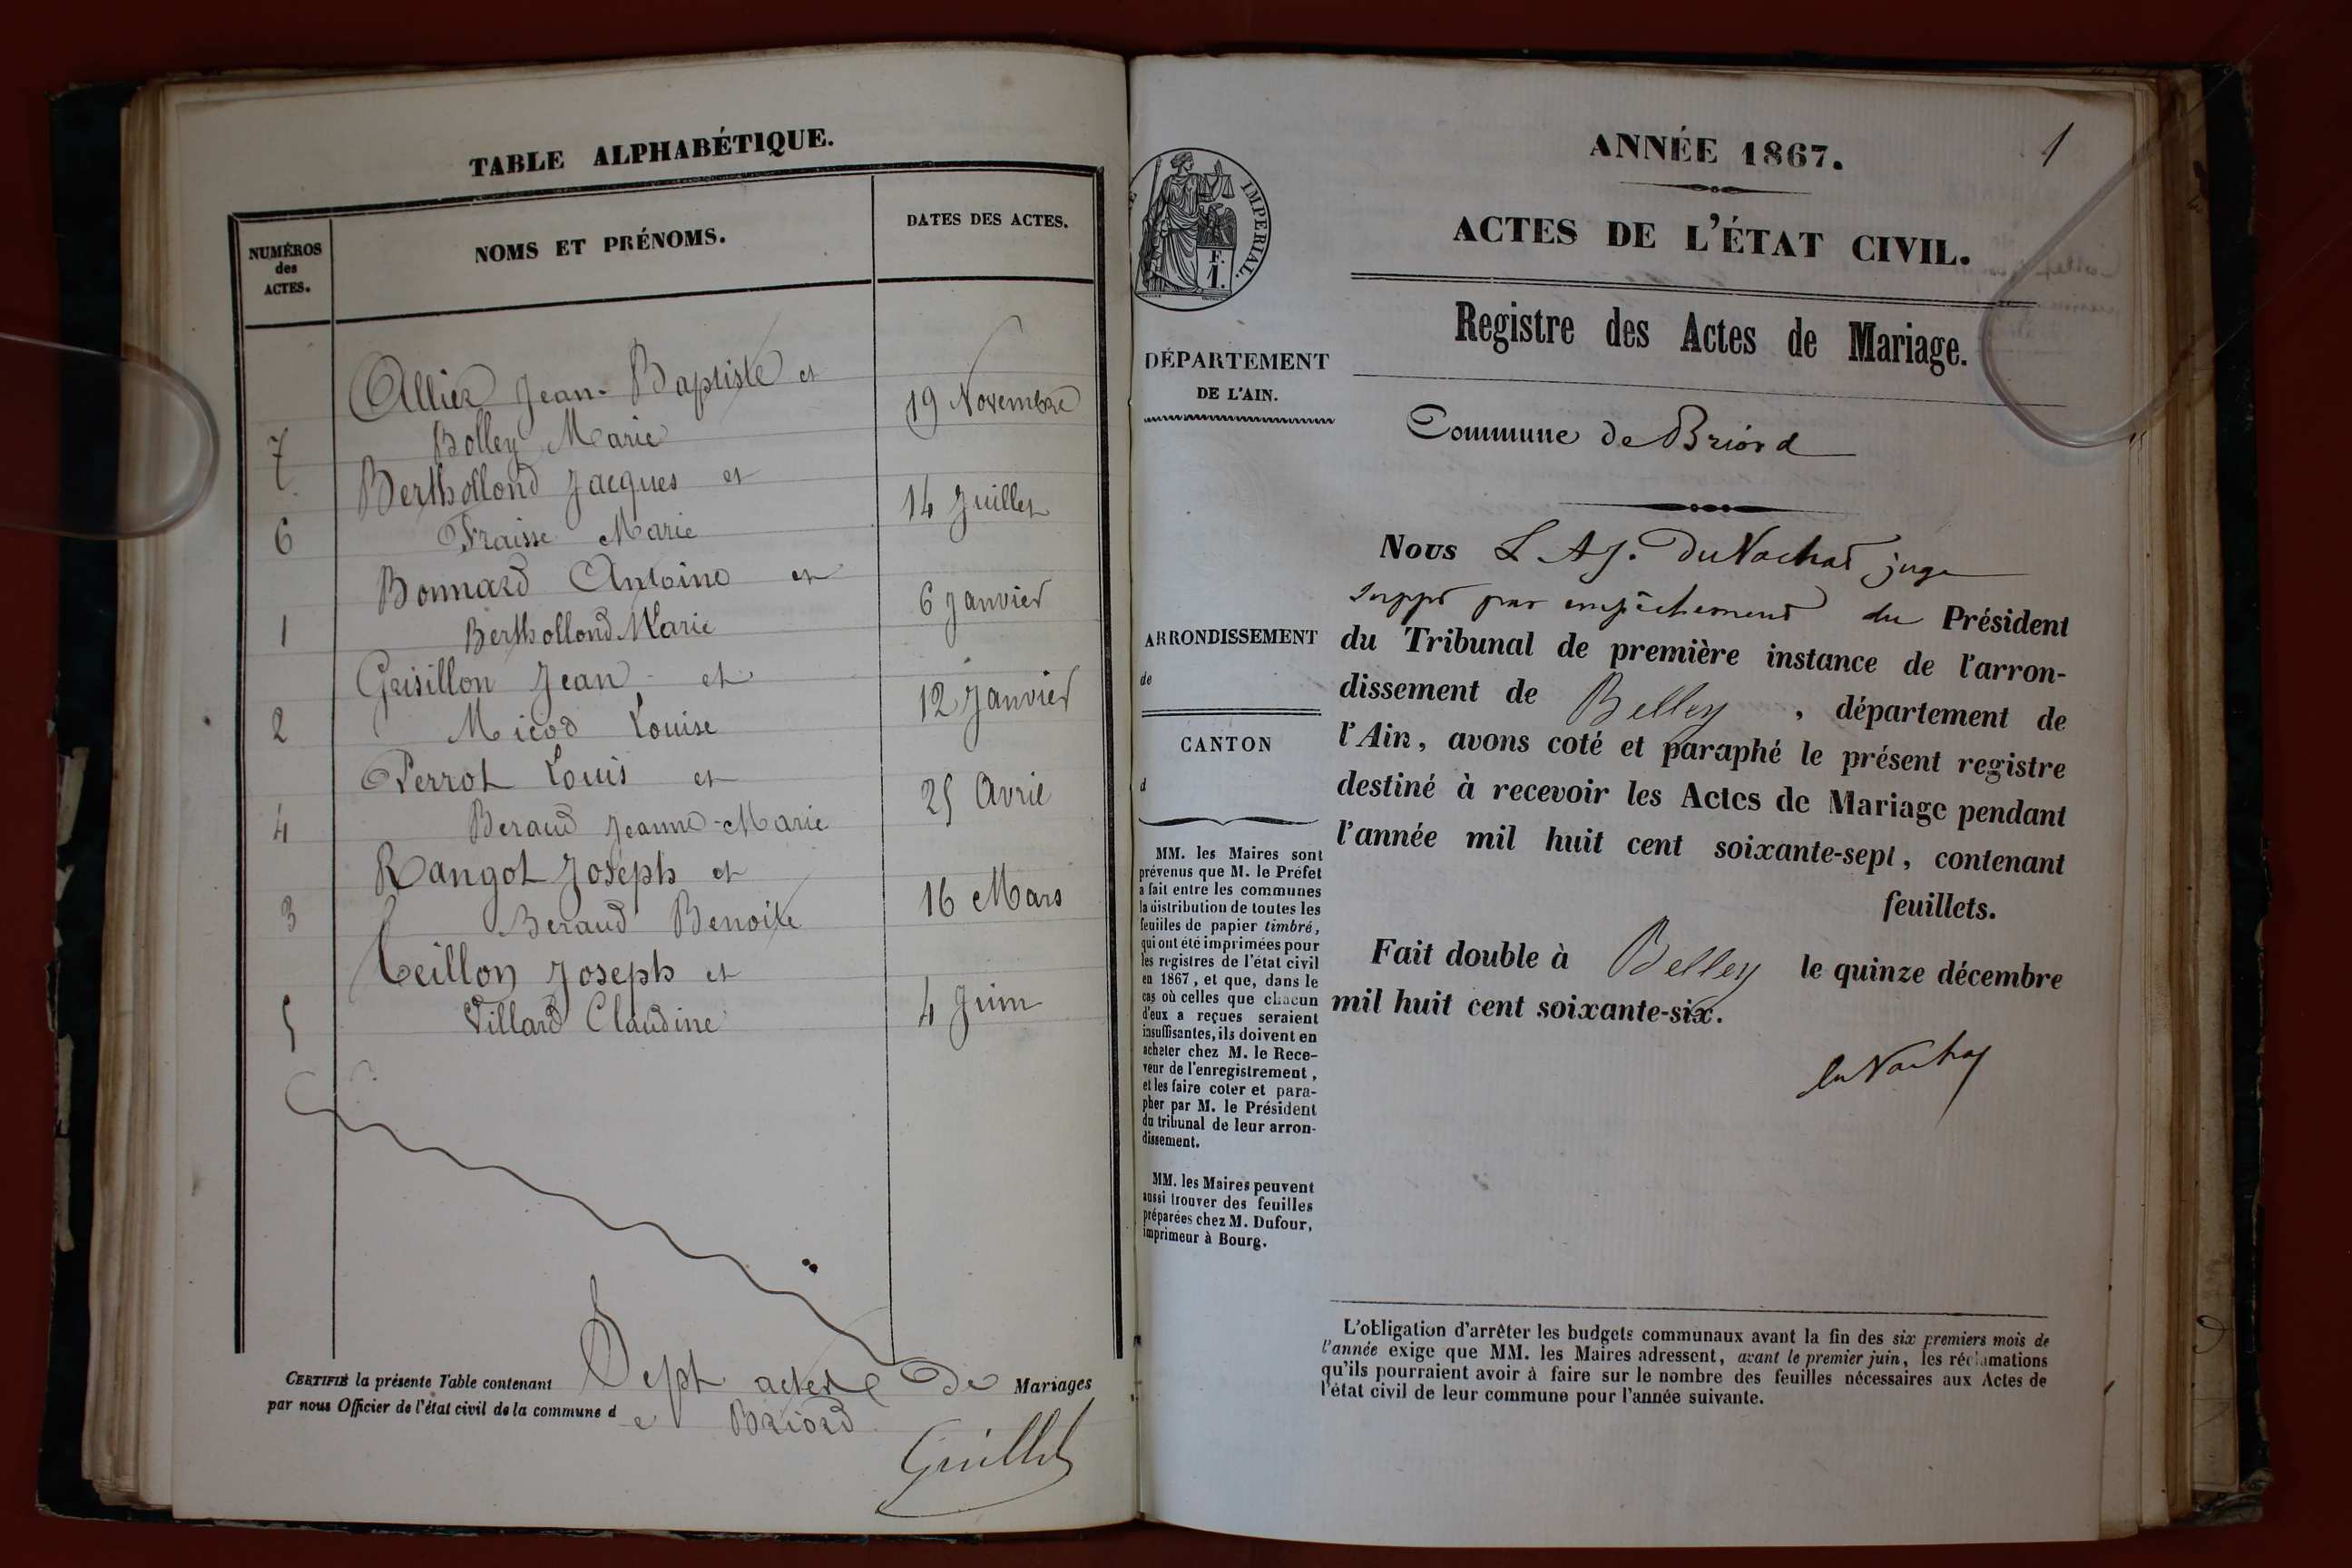 TABLE ALPHABÉTIQUE.
NUMÉROS
des
ACTES.
NOMS ET PRÉNOMS.
DATES DES ACTES.
Allier Jean-Baptiste et
7 Bolley Marie 19 Novembre
Berthollond Jacques et
6 Fraisse Marie 14 Juillet
Bonnard Antoine et
1 Berthollond Marie 6 Janvier
Grisillon Jean et
2 Micod Louise 12 Janvier
Perrot Louis et
4 Beraud Jeanne-Marie 25 Avril
Rangot Joseph et
3 Beraud Benoite 16 Mars
Teillon Joseph et
5 Villard Claudine 4 Juin
CERTIFIÉ la présente Table contenant Sept actes de Mariages
par nous Officier de l'état civil de la commune de Briord
Guillet
1
ANNÉE 1867.
ACTES DE L'ÉTAT CIVIL.
Registre des Actes de Mariage.
IMPERIAL.
F.
1.
DÉPARTEMENT
DE L'AIN.
Commune de Briord
ARRONDISSEMENT
de
CANTON
d
MM. les Maires sont
prévenus que M. le Préfet
a fait entre les communes
la distribution de toutes les
feuilles de papier timbré,
qui ont été imprimées pour
les registres de l'état civil
en 1867, et que, dans le
cas où celles que chacun
d'eux a reçues seraient
insuffisantes, ils doivent en
acheter chez M. le Rece-
veur de l'enregistrement,
et les faire coter et para-
pher par M. le Président
du tribunal de leur arron-
dissement.
MM. les Maires peuvent
aussi trouver des feuilles
préparées chez M. Dufour,
imprimeur à Bourg.
Nous L. A. J. DuNachat juge
suppt par empêchement du Président
du Tribunal de première instance de l'arron-
dissement de Belley, département de
l'Ain, avons coté et paraphé le présent registre
destiné à recevoir les Actes de Mariage pendant
l'année mil huit cent soixante-sept, contenant
feuillets.
Fait double à Belley le quinze décembre
mil huit cent soixante-six.
L'obligation d'arrêter les budgets communaux avant la fin des six premiers mois de
l'année exige que MM. les Maires adressent, avant le premier juin, les réclamations
qu'ils pourraient avoir à faire sur le nombre des feuilles nécessaires aux Actes de
l'état civil de leur commune pour l'année suivante.